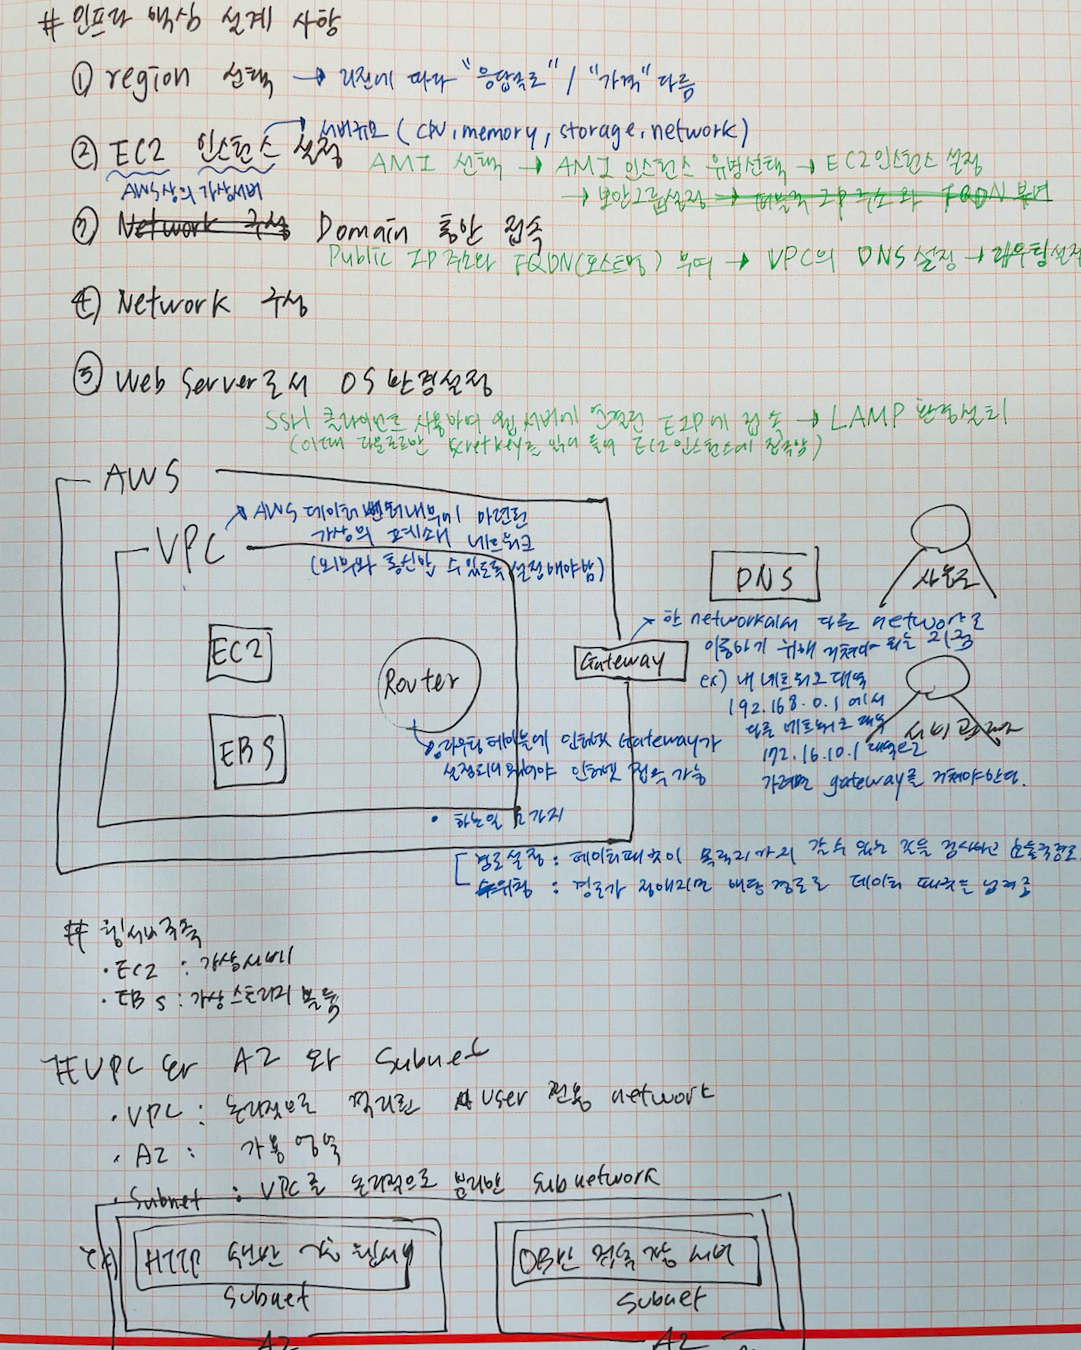 # 인프라 핵심 설계 사항
① region 선택 → 리전에 따라 "응답속도" / "가격" 다름
서버규모 (CPU, memory, storage, network)
② EC2 인스턴스 설정
AMI 선택 → AMI 인스턴스 유형선택 → EC2인스턴스 설정
AWS상의 가상서버
→ 보안그룹설정 → 퍼블릭 IP 주소와 FQDN 부여
③ Network 구성 Domain 통한 접속
Public IP주소와 FQDN(호스트명) 부여 → VPC의 DNS 설정 → 라우팅설정
④ Network 구성
⑤ Web Server로서 OS 환경설정
SSH 클라이언트 사용하여 웹서버에 연결된 EIP에 접속 → LAMP 환경설치
(이때 다운로드한 secret key를 읽어 들여 EC2인스턴스에 접속함)
AWS
AWS 데이터센터내부에 마련된
VPC
가상의 폐쇄 네트워크
(외부와 통신할 수 있도록 설정해야함)
DNS
사용자
한 network에서 다른 network로
이동하기 위해 거쳐야 하는 지점
EC2
Router
Gateway
ex) 내 네트워크 대역
192.168.0.1 에서
서버관리자
다른 네트워크 대역
172.16.10.1 대역으로
가려면 gateway를 거쳐야한다.
EBS
라우팅테이블에 인터넷 Gateway가
설정되어 있어야 인터넷 접속 가능
• 하는일 2가지
경로설정 : 데이터패킷이 목적지까지 갈수 있는 것을 검사하고
: 경로가 정해지면 해당 경로로 데이터 패킷을 넘겨줌
# 웹서버구축
· EC2 : 가상서버
· EBS : 가상스토리지 볼륨
# VPC 와 AZ 와 Subnet
· VPC : 논리적으로 격리된 user 전용 network
· AZ : 가용 영역
· Subnet : VPC를 논리적으로 분리한 Subnetwork
ex)
HTTP 웹서버
DB만 서버
Subnet
Subnet
AZ
AZ